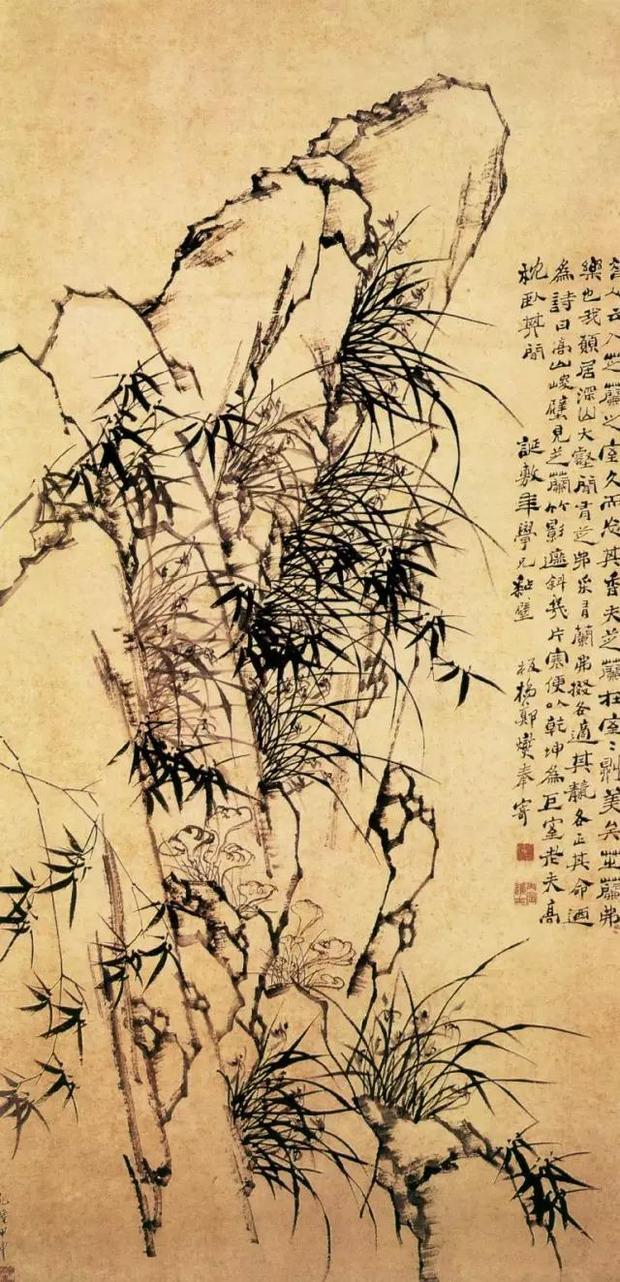 人云入芝蘭之室久而忘其香夫芝蘭在室〻則美矣蘭弗
樂也我願居深山大壑間有芝弗采有蘭弗掇各適其各正其命迺
為詩曰高山峻壁見芝蘭竹影遮斜幾片寒便以乾坤為巨室老夫高
枕臥其間
誕敷年學兄黏壁 板橋鄭燮奉寄